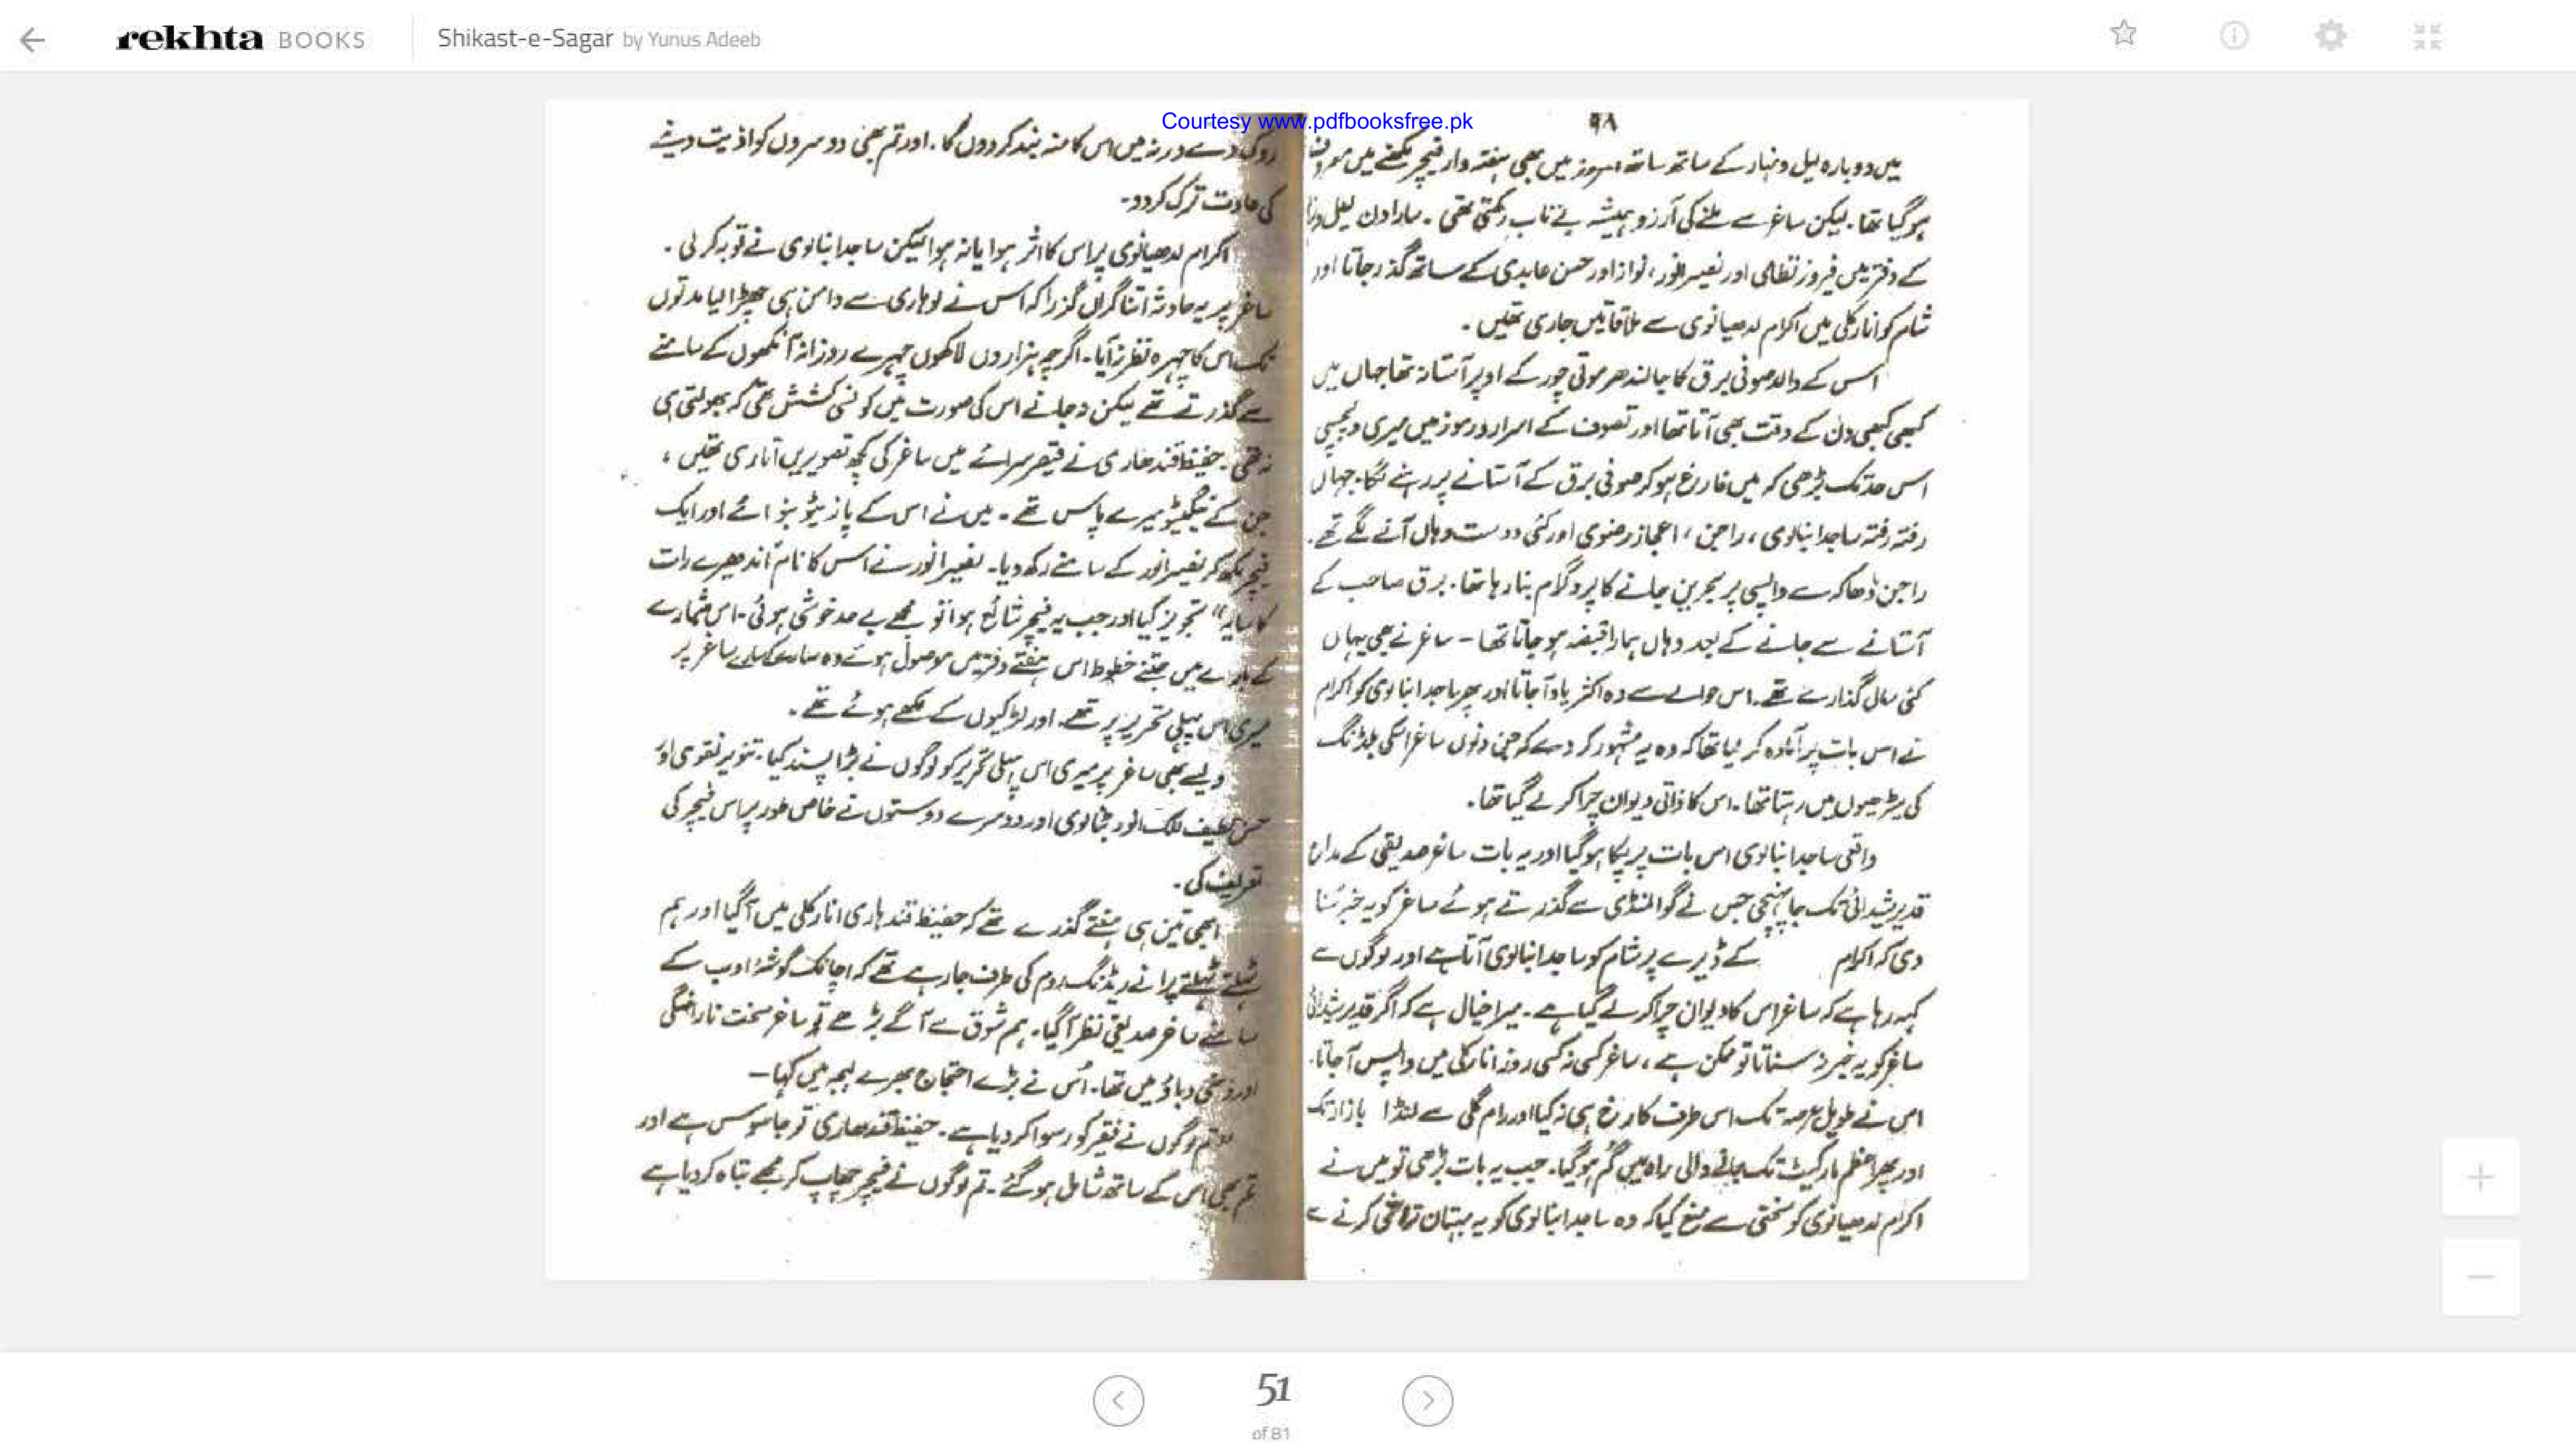 rekhta BOOKS
Shikast-e-Sagar by Yunus Adeeb
Courtesy www.pdfbooksfree.pk
۹۸
میں دوبارہ لیل و نہار کے ساتھ ساتھ امروز میں بھی ہفتہ وار فیچر لکھنے میں مصروف
ہو گیا تھا۔ لیکن ساغر سے ملنے کی آرزو ہمیشہ بے تاب رکھتی تھی۔ سارا دن لیل و نہار
کے دفتر میں فیروز نظامی اور نصیر انور، نواز اور حسن عابدی کے ساتھ گذر جاتا اور
شام کو انارکلی میں اکرام لدھیانوی سے ملاقاتیں جاری تھیں۔
اس کے والد صوفی برق کا جالندھر موتی چور کے اوپر آستانہ تھا جہاں میں
کبھی کبھی دن کے وقت بھی آتا تھا اور تصوف کے اسرار و رموز میں میری دلچسپی
اس حد تک بڑھی کہ میں فارغ ہو کر صوفی برق کے آستانے پر رہنے لگا۔ جہاں
رفتہ رفتہ ساجد انبالوی، راجن، اعجاز رضوی اور کئی دوست وہاں آنے لگے تھے۔
راجن ڈھاکہ سے واپسی پر بحرین جانے کا پروگرام بنا رہا تھا۔ برق صاحب کے
آستانے سے جانے کے بعد وہاں ہمارا قبضہ ہو جاتا تھا – ساغر نے بھی یہاں
کئی سال گذارے تھے۔ اس حوالے سے وہ اکثر یاد آ جاتا اور پھر ساجد انبالوی کو اکرام
نے اس بات پر آمادہ کر لیا تھا کہ وہ یہ مشہور کر دے کہ جن دنوں ساغر اسکی بلڈنگ
کی سیڑھیوں میں رہتا تھا۔ اس کا ذاتی دیوان چرا کر لے گیا تھا۔
واقعی ساجد انبالوی اس بات پر پکا ہو گیا اور یہ بات ساغر صدیقی کے مداح
قدیر شیدائی تک جا پہنچی جس نے گوالمنڈی سے گذرتے ہوئے ساغر کو یہ خبر سُنا
دی کہ اکرام کے ڈیرے پر شام کو ساجد انبالوی آتا ہے اور لوگوں سے
کہہ رہا ہے کہ ساغر اس کا دیوان چرا کر لے گیا ہے۔ میرا خیال ہے کہ اگر قدیر شیدائی
ساغر کو یہ خبر نہ سناتا تو ممکن ہے، ساغر کسی نہ کسی روز انارکلی میں واپس آ جاتا۔
اس نے طویل عرصہ تک اس طرف کا رخ ہی نہ کیا اور رام گلی سے لنڈا بازار تک
اور پھر اعظم مارکیٹ تک جانے والی راہ میں گم ہو گیا۔ جب یہ بات بڑھی تو میں نے
اکرام لدھیانوی کو سختی سے منع کیا کہ وہ ساجد انبالوی کو یہ بہتان تراشی کرنے سے
روک دے ورنہ میں اس کا منہ بند کر دوں گا۔ اور تم بھی دوسروں کو اذیت دینے
کی عادت ترک کر دو۔
اکرام لدھیانوی پر اس کا اثر ہوا یا نہ ہوا لیکن ساجد انبالوی نے توبہ کر لی۔
ساغر پر یہ حادثہ اتنا گراں گذرا کہ اس نے لوہاری سے دامن ہی چھڑا لیا مدتوں
تک اس کا چہرہ نظر نہ آیا۔ اگرچہ ہزاروں لاکھوں چہرے روزانہ آنکھوں کے سامنے
سے گذرتے تھے لیکن نہ جانے اس کی صورت میں کونسی کشش تھی کہ بھولتی ہی
نہ تھی۔ حفیظ قندھاری نے قیصر سرائے میں ساغر کی کچھ تصویریں اتاری تھیں،
جن کے نیگیٹو میرے پاس تھے۔ میں نے اس کے پازیٹو بنوائے اور ایک
فیچر لکھ کر نصیر انور کے سامنے رکھ دیا۔ نصیر انور نے اس کا نام "اندھیرے رات
کا سایہ" تجویز کیا اور جب یہ فیچر شائع ہوا تو مجھے بے حد خوشی ہوئی۔ اس شمارے
کے بارے میں جتنے خطوط اس ہفتے دفتر میں موصول ہوئے وہ سارے کے سارے ساغر پر
میری اس پہلی تحریر پر تھے۔ اور لڑکیوں کے لکھے ہوئے تھے۔
ویسے بھی ساغر پر میری اس پہلی تحریر کو لوگوں نے بڑا پسند کیا۔ تنویر نقوی اور
حسن لطیف للک انور بٹالوی اور دوسرے دوستوں نے خاص طور پر اس فیچر کی
تعریف کی۔
ابھی تین ہی ہفتے گذرے تھے کہ حفیظ قندہاری انارکلی میں آ گیا اور ہم
ٹہلتے ٹہلتے پرانے ریڈنگ روم کی طرف جا رہے تھے کہ اچانک گوشۂ ادب کے
سامنے ساغر صدیقی نظر آ گیا۔ ہم شوق سے آگے بڑھے تو ساغر سخت ناراضگی
اور ذہنی دباؤ میں تھا۔ اُس نے بڑے احتجاج بھرے لہجہ میں کہا –
"تم لوگوں نے فقیر کو رسوا کر دیا ہے۔ حفیظ قندھاری تو جاسوس ہے اور
تم بھی اس کے ساتھ شامل ہو گئے۔ تم لوگوں نے فیچر چھاپ کر مجھے تباہ کر دیا ہے
51
of 81